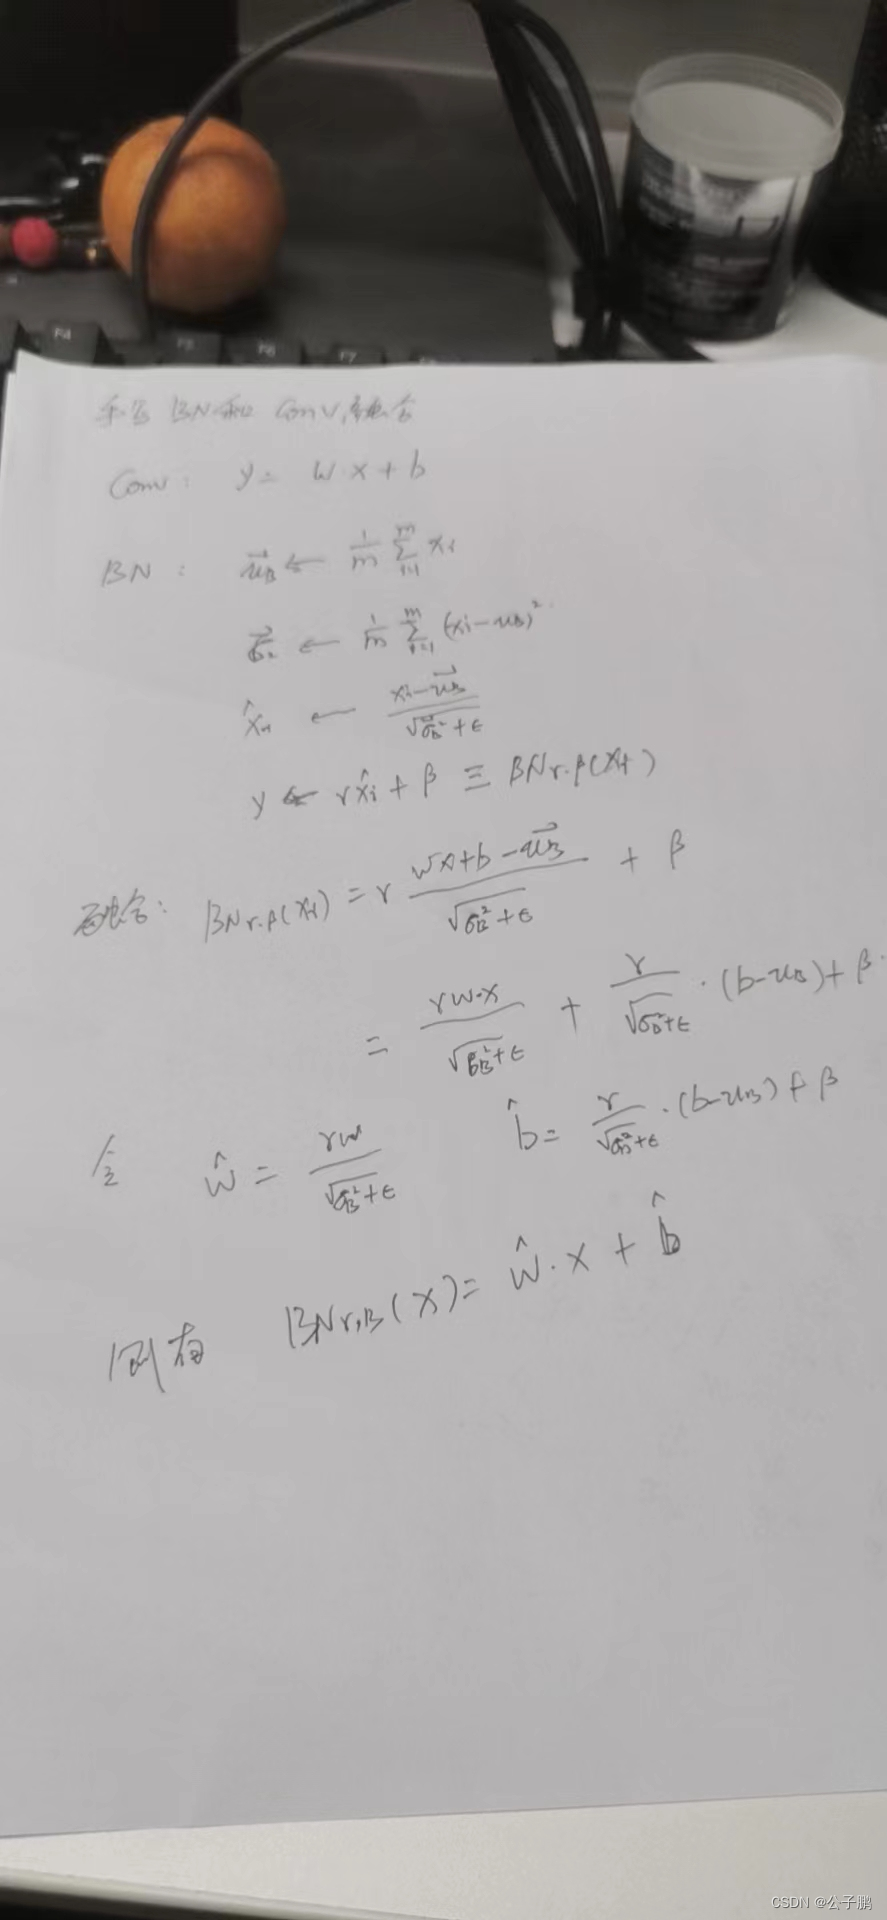 F4
F5
F6
F7
手写 BN和 Conv 融合
Conv: y = w·x + b
BN: u⃗_B ← 1/m Σ_{i=1}^{m} x_i
σ⃗_B² ← 1/m Σ_{i=1}^{m} (x_i - u_B)²
x̂_i ← (x_i - u⃗_B) / √(σ_B² + ε)
y ← r x̂_i + β ≡ BN_{r,β}(x_i)
融合: BN_{r,β}(x_i) = r (wx + b - u⃗_B) / √(σ_B² + ε) + β
= rw·x / √(σ_B² + ε) + r / √(σ_B² + ε) · (b - u_B) + β
令 ŵ = rw / √(σ_B² + ε) b̂ = r / √(σ_B² + ε) · (b - u_B) + β
则有 BN_{r,B}(x) = ŵ·x + b̂
CSDN @公子鹏